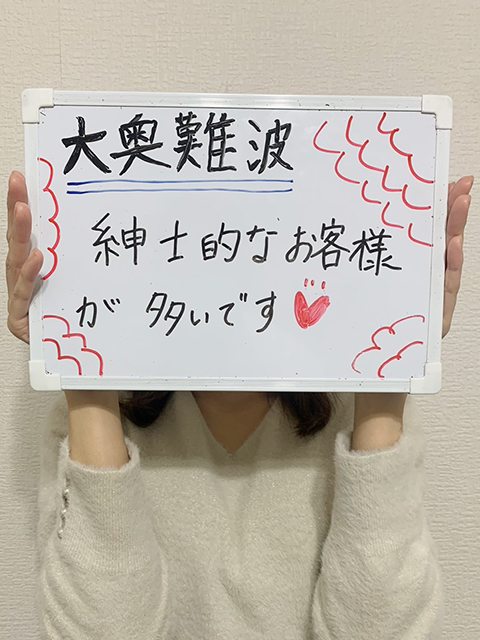 大奥難波
紳士的なお客様
が多いです